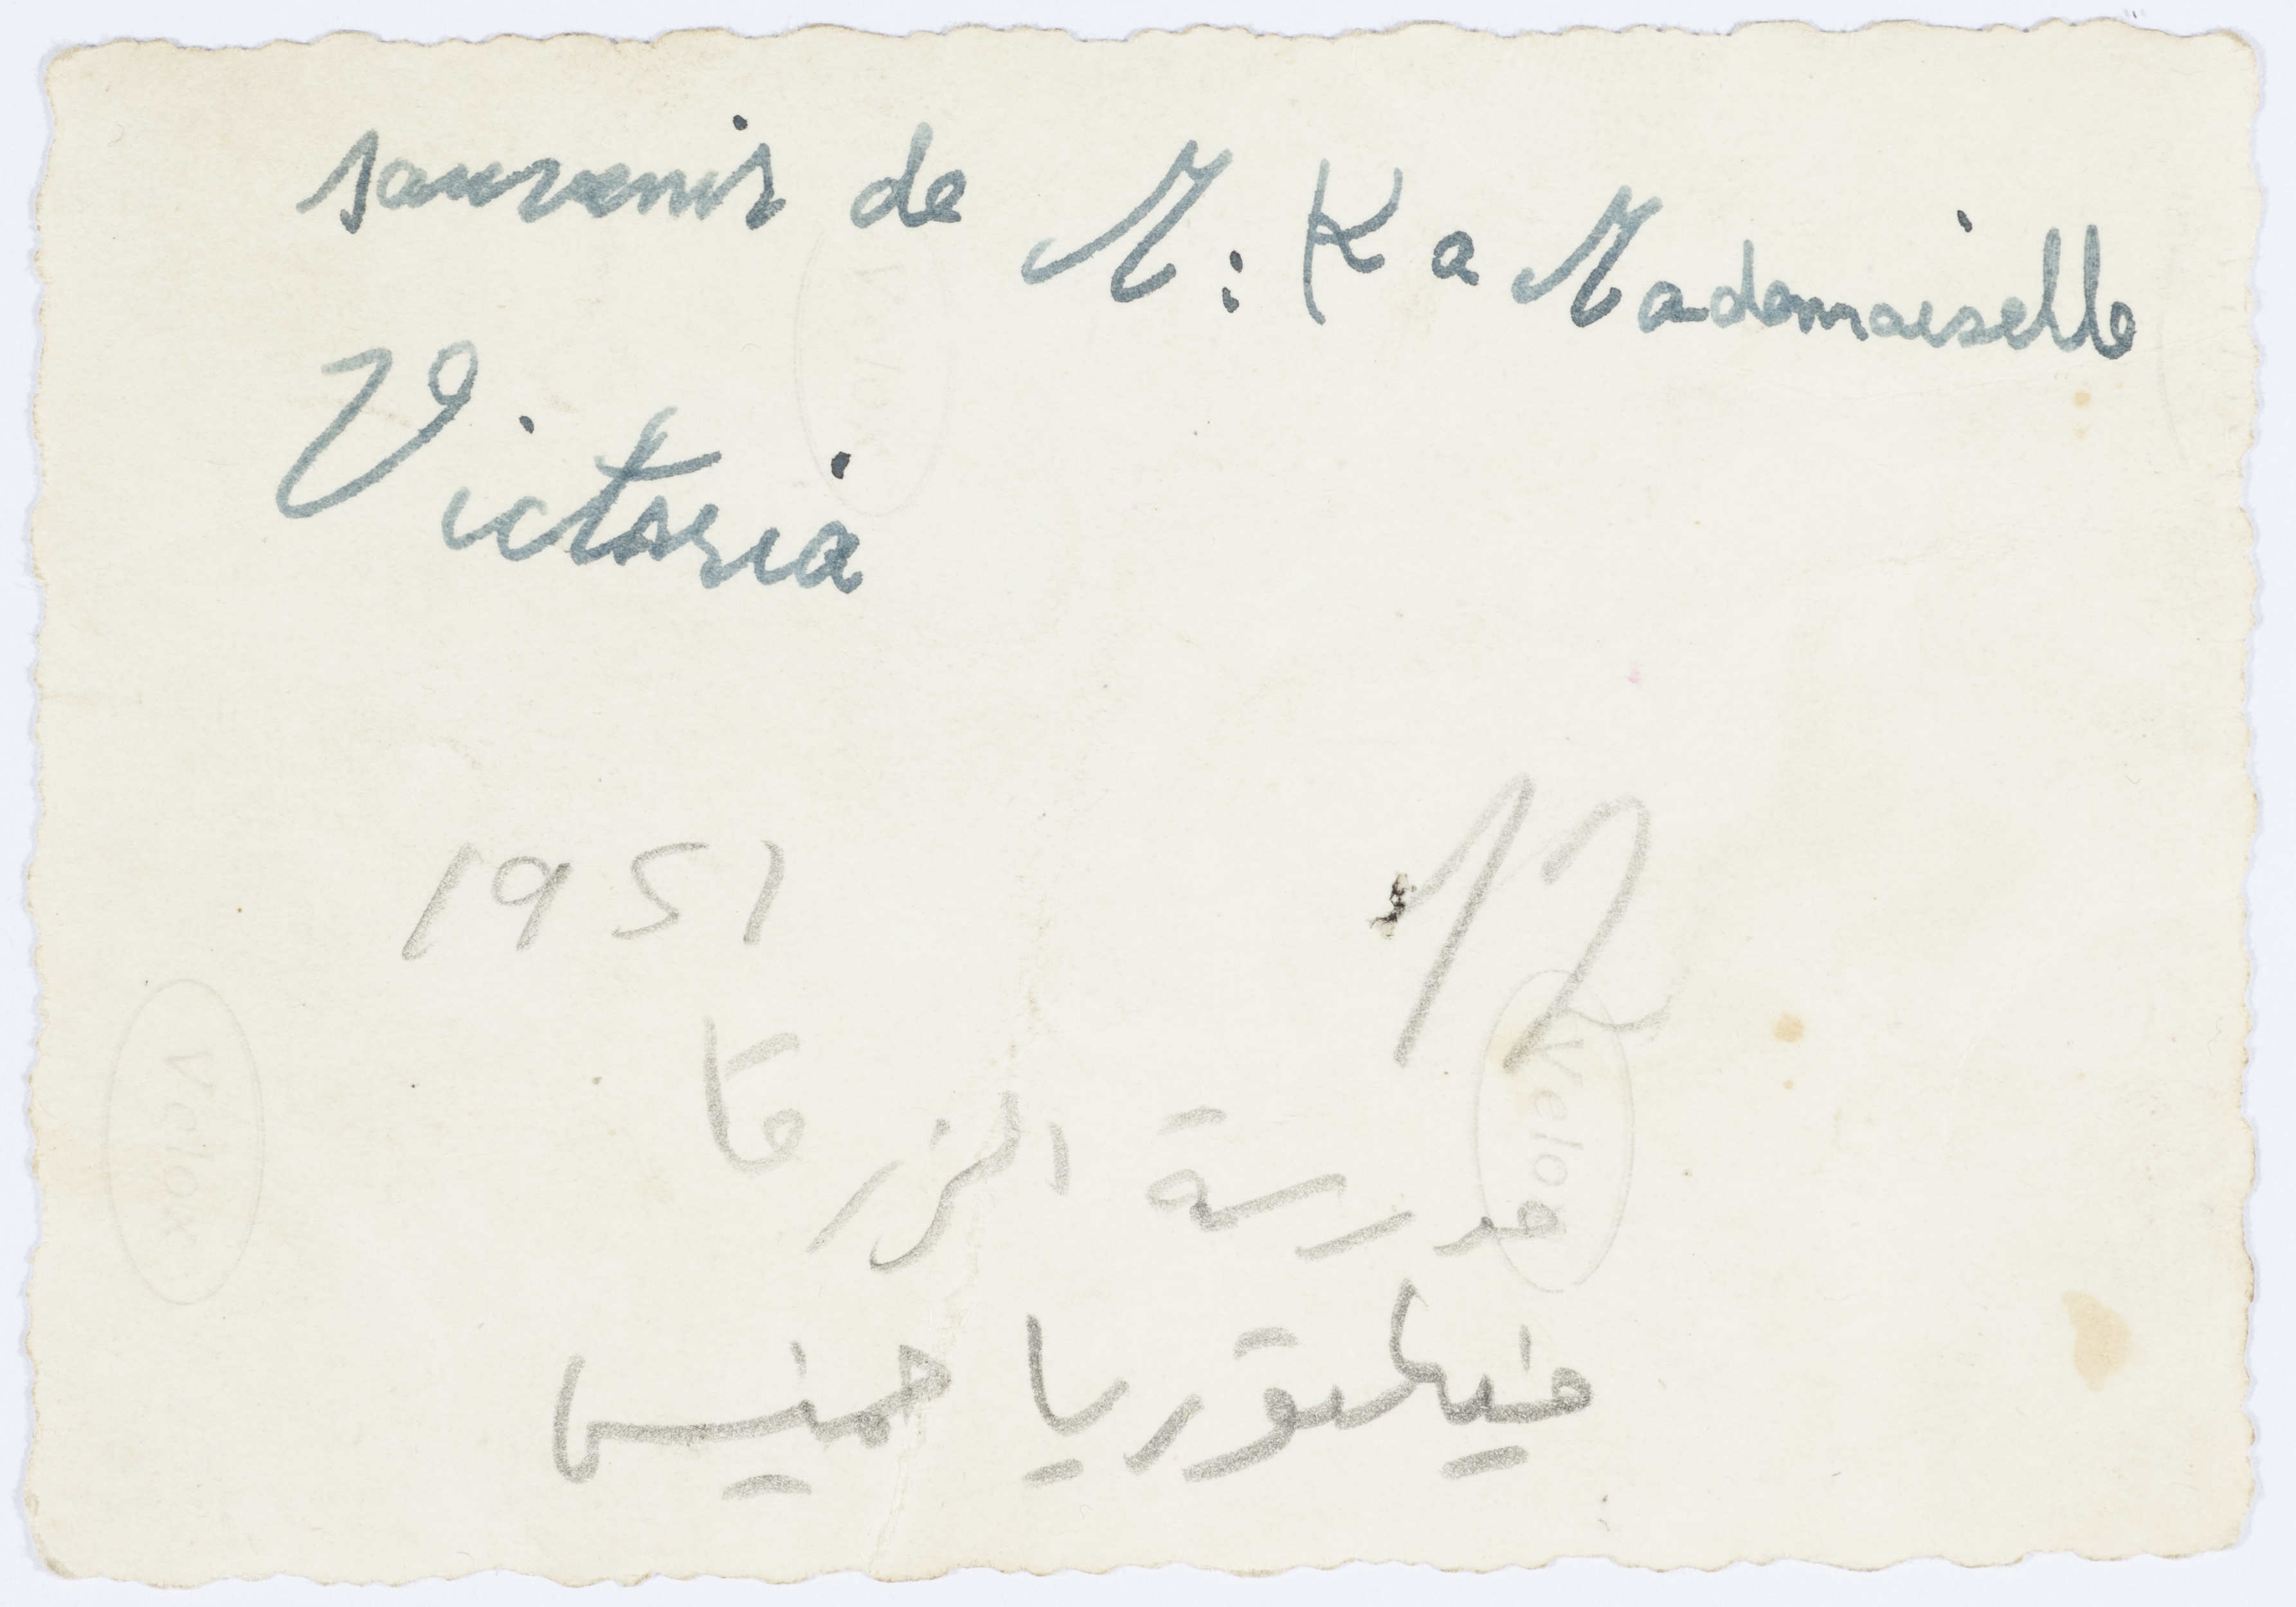 souvenir de M: K a Mademoiselle
Victoria
1951
12
مدرسة الزرقا
فيكتوريا
Velox
Velox
Velox